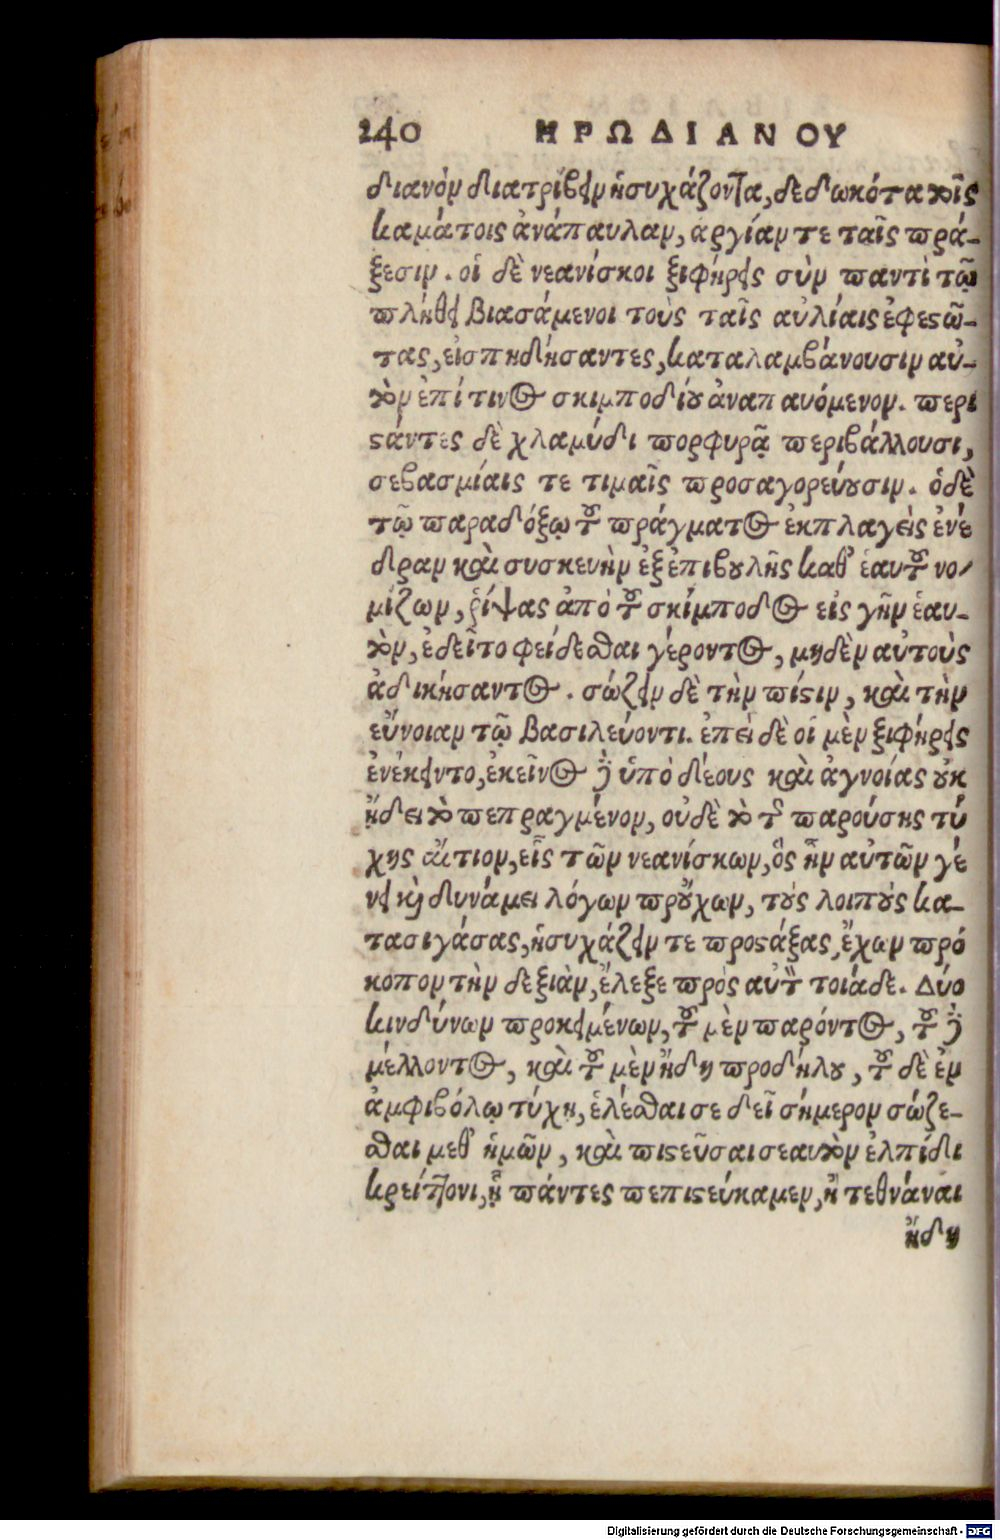 240 ΗΡΩΔΙΑΝΟΥ
διανὸν διατρίβειν ἡσυχάζοντα, δεδωκότα τοῖς
καμάτοις ἀνάπαυλαν, ἀργίαν τε ταῖς πρά-
ξεσιν. οἱ δὲ νεανίσκοι ξιφήρεις σὺν παντὶ τῷ
πλήθει βιασάμενοι τοὺς ταῖς αὐλίαις ἐφεϛῶ-
τας, εἰσπηδήσαντες, καταλαμβάνουσιν αὐ-
τὸν ἐπί τινος σκιμποδίου ἀναπαυόμενον. περι
ϛάντες δὲ χλαμύδι πορφυρᾷ περιβάλλουσι,
σεβασμίαις τε τιμαῖς προσαγορεύουσιν. ὁ δὲ
τῷ παραδόξῳ τοῦ πράγματος ἐκπλαγεὶς ἐνέ
δραν καὶ συσκευὴν ἐξ ἐπιβουλῆς καθ’ ἑαυτοῦ νο/
μίζων, ῥίψας ἀπὸ τοῦ σκίμποδος εἰς γῆν ἑαυ-
τὸν, ἐδεῖτο φείδεσθαι γέροντος, μηδὲν αὐτοὺς
ἀδικήσαντος. σώζειν δὲ τὴν πίϛιν, καὶ τὴν
εὔνοιαν τῷ βασιλεύοντι. ἐπεὶ δὲ οἱ μὲν ξιφήρεις
ἐνέκειντο, ἐκεῖνος δὲ ὑπὸ δέους καὶ ἀγνοίας οὐκ
ᾔδει τὸ πεπραγμένον, οὐδὲ τὸ τῆς παρούσης τύ
χης αἴτιον, εἷς τῶν νεανίσκων, ὃς ἦν αὐτῶν γέ
νει καὶ δυνάμει λόγων προὔχων, τοὺς λοιποὺς κα-
τασιγάσας, ἡσυχάζειν τε προϛάξας, ἔχων πρό
κοπον τὴν δεξιὰν, ἔλεξε πρὸς αὐτὸν τοιάδε. Δύο
κινδύνων προκειμένων, τοῦ μὲν παρόντος, τοῦ δὲ
μέλλοντος, καὶ τοῦ μὲν ἤδη προδήλου, τοῦ δὲ ἐν
ἀμφιβόλῳ τύχῃ, ἑλέσθαι σε δεῖ σήμερον σώζε-
σθαι μεθ’ ἡμῶν, καὶ πιϛεῦσαι σεαυτὸν ἐλπίδι
κρείττονι, ᾗ πάντες πεπιϛεύκαμεν, ἢ τεθνάναι
ἤδη
Digitalisierung gefördert durch die Deutsche Forschungsgemeinschaft - DFG